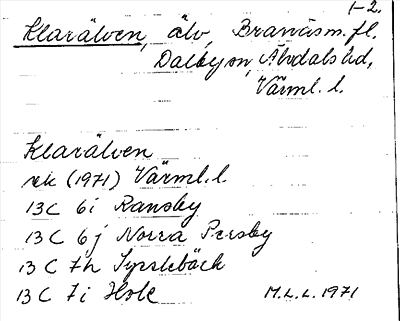 1-2.
Klarälven, älv, Branäs m.fl.
Dalby sn, Älvdals hd,
Värml. l.
Klarälven
rek (1971) Värml. l.
13C 6i Ransby
13C 6j Norra Persby
13C 7h Sysslebäck
13C 7i Hole M.L.L. 1971